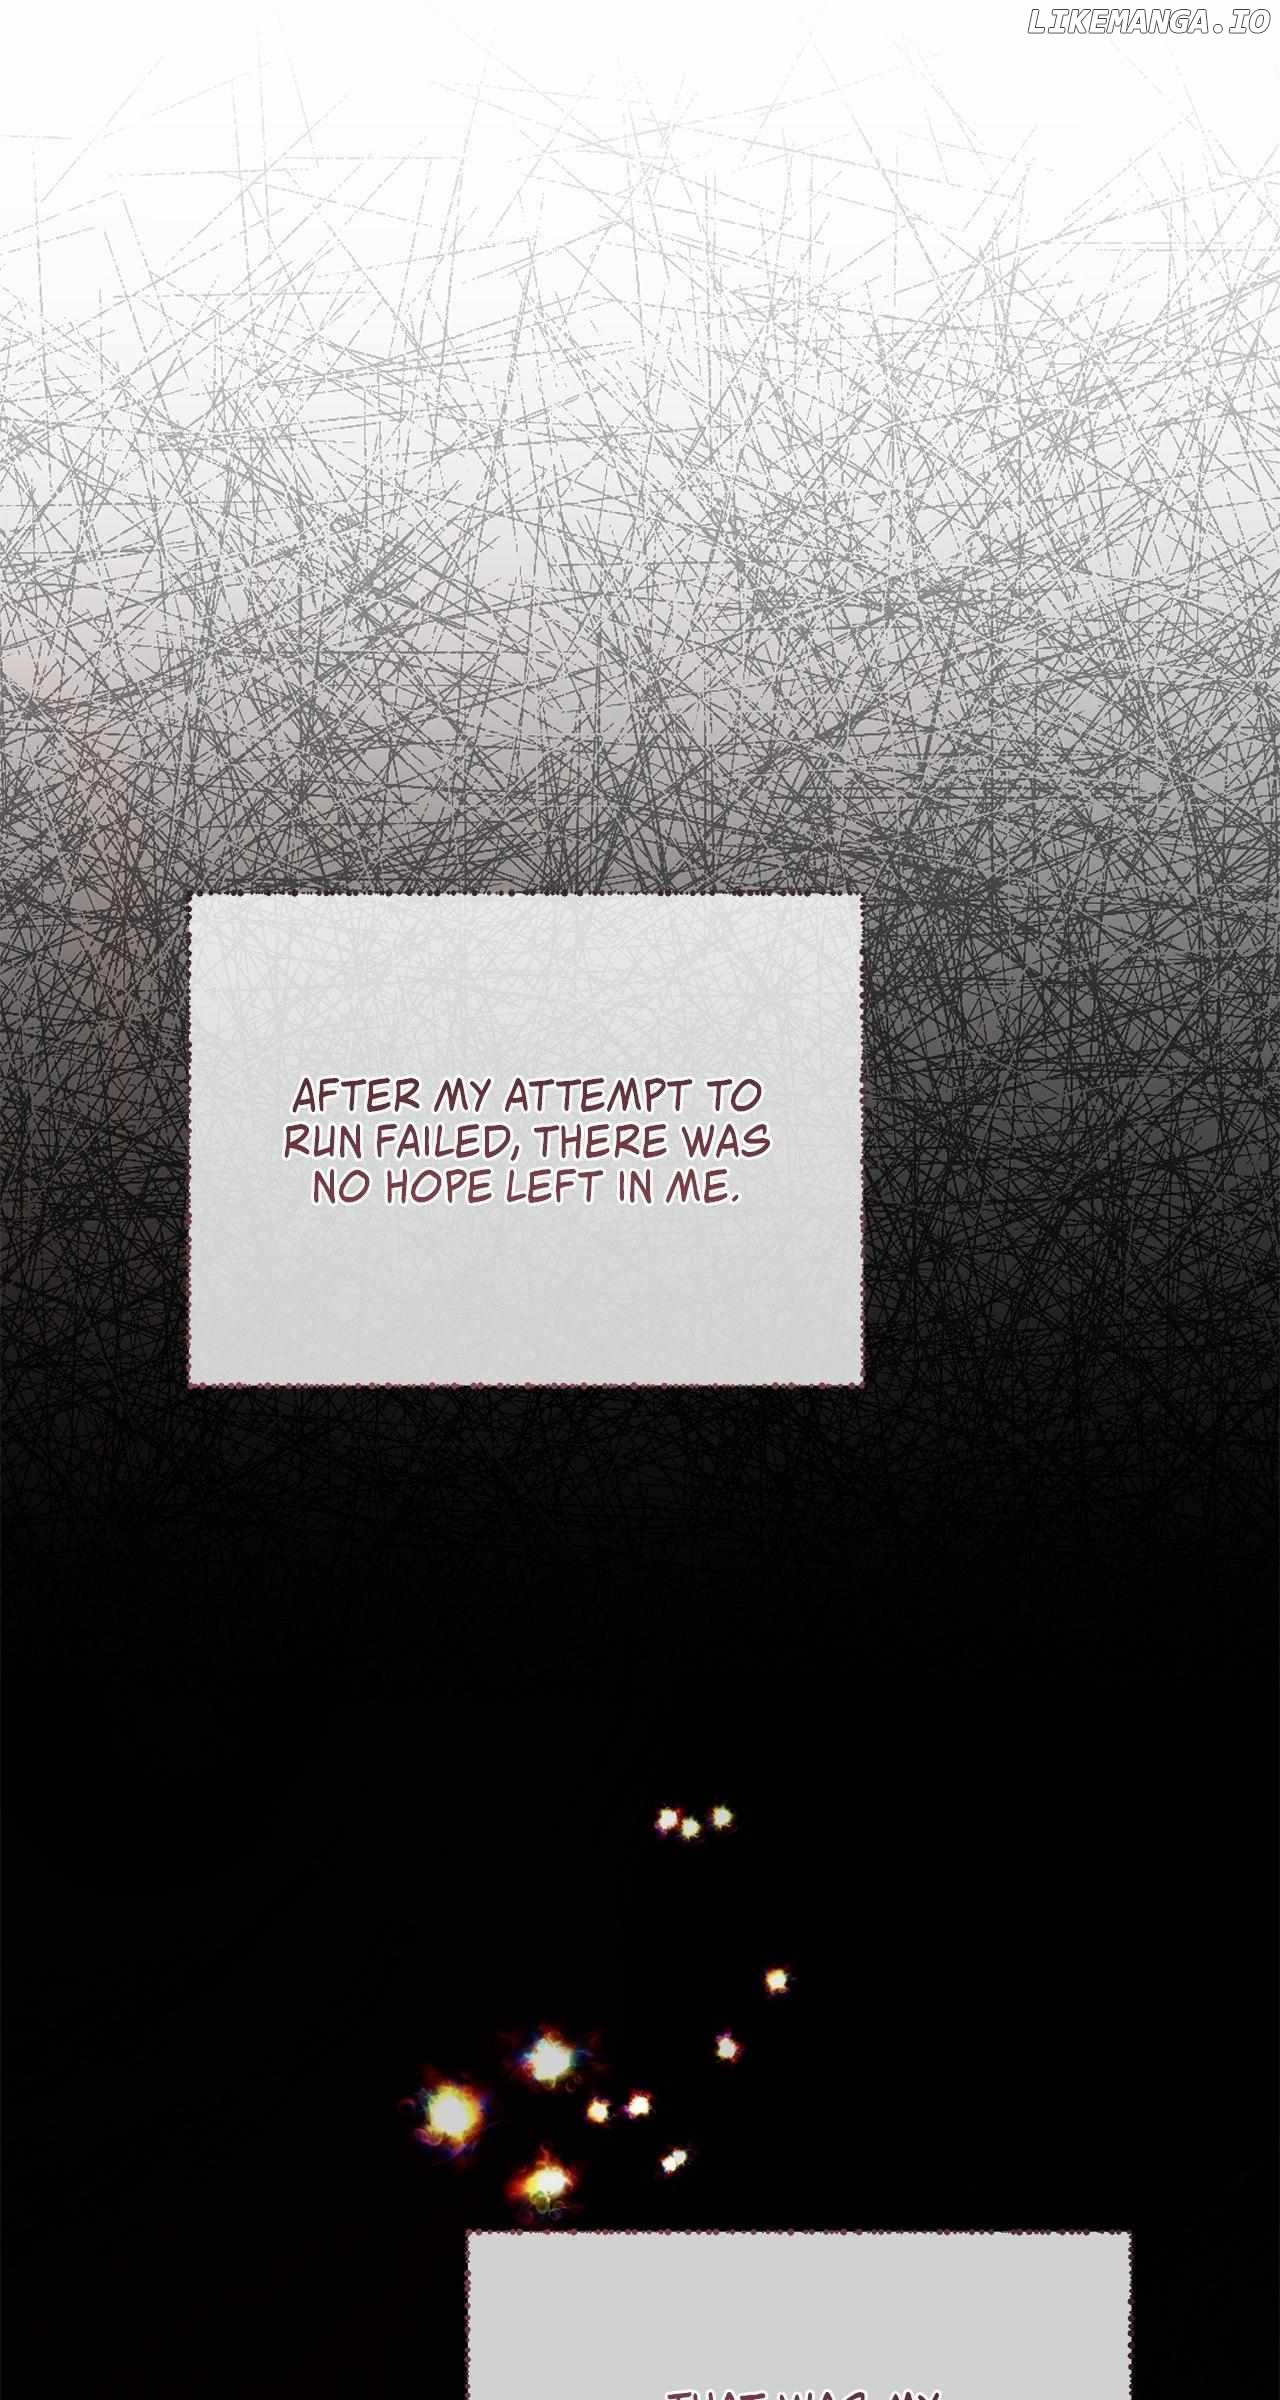 LIKEMANGA.IO
AFTER MY ATTEMPT TO
RUN FAILED, THERE WAS
NO HOPE LEFT IN ME.
THAT WAS MY